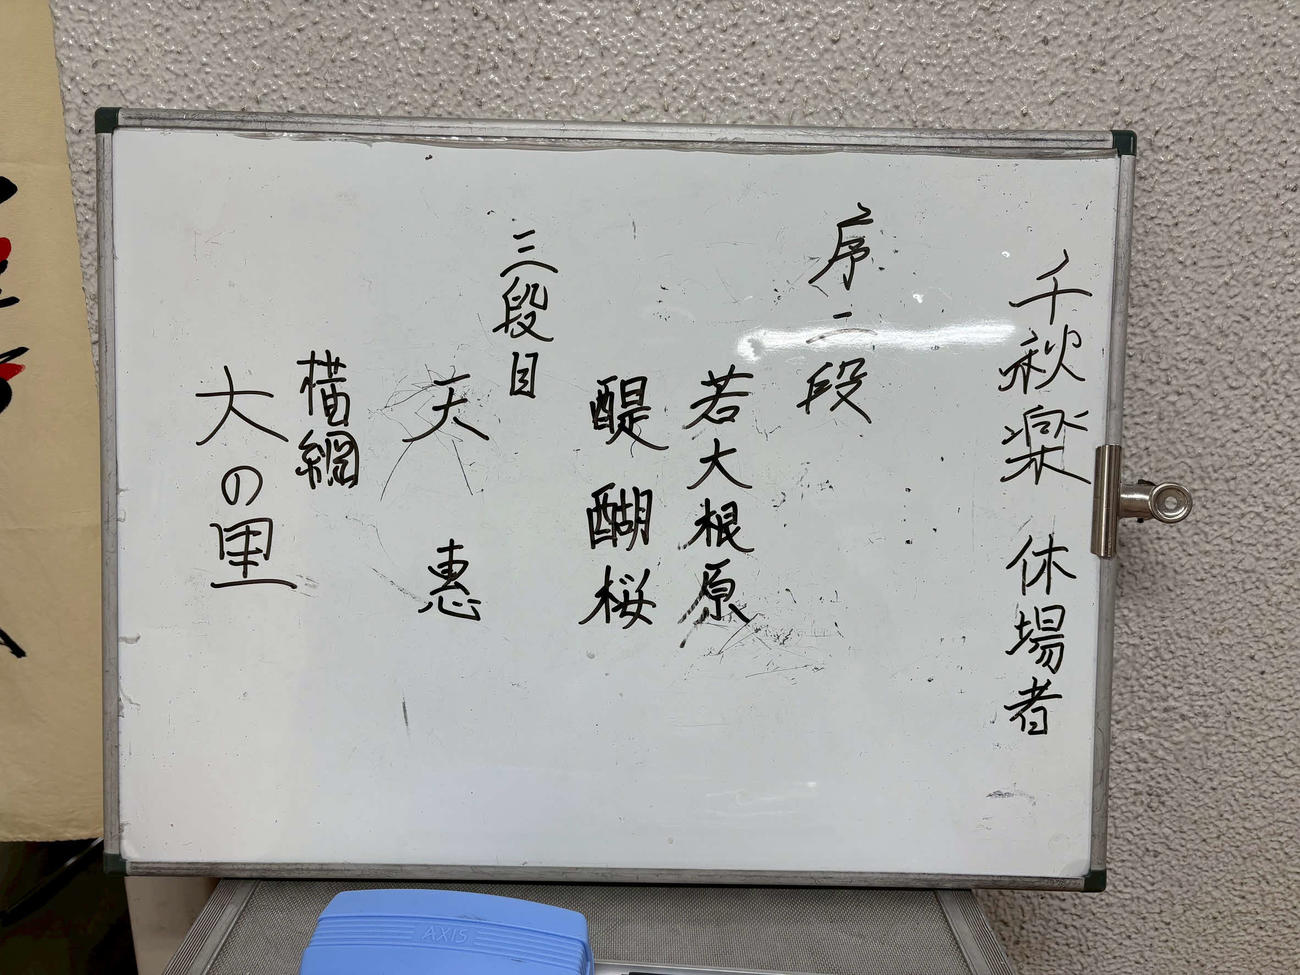 千秋楽 休場者
序二段
若大根原
醍醐桜
三段目
天惠
横綱
大の里
AXIS